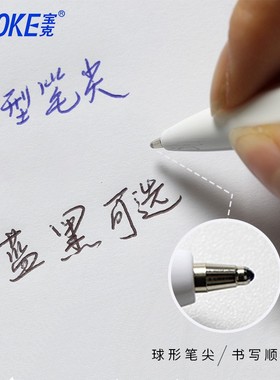 OKE宝克
型笔尖
蓝黑可选
球形笔尖/书写顺